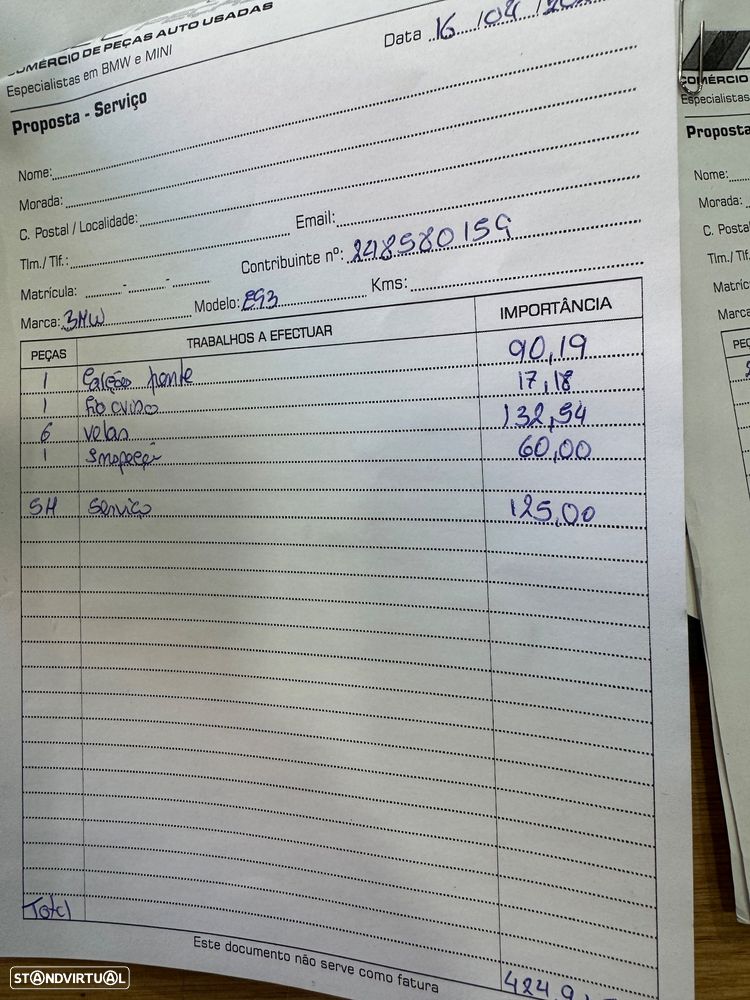 COMÉRCIO DE PEÇAS AUTO USADAS
Especialistas em BMW e MINI
Data 16/04/20
Proposta - Serviço
Nome:
Morada:
C. Postal / Localidade:
Tlm./ Tlf.: Email:
Contribuinte nº: 248580159
Matrícula: - -
Marca: BMW Modelo: E93 Kms:
PEÇAS TRABALHOS A EFECTUAR IMPORTÂNCIA
1 Calções frente 90,19
1 fio aviso 17,18
6 velas 132,54
1 Inspeção 60,00
5H Serviço 125,00
Total 424,9
Este documento não serve como fatura
STANDVIRTUAL
COMÉRCIO
Especialistas
Proposta
Nome:
Morada:
C. Posta
Tlm./ Tlf
Matríc
Marca
PEÇ